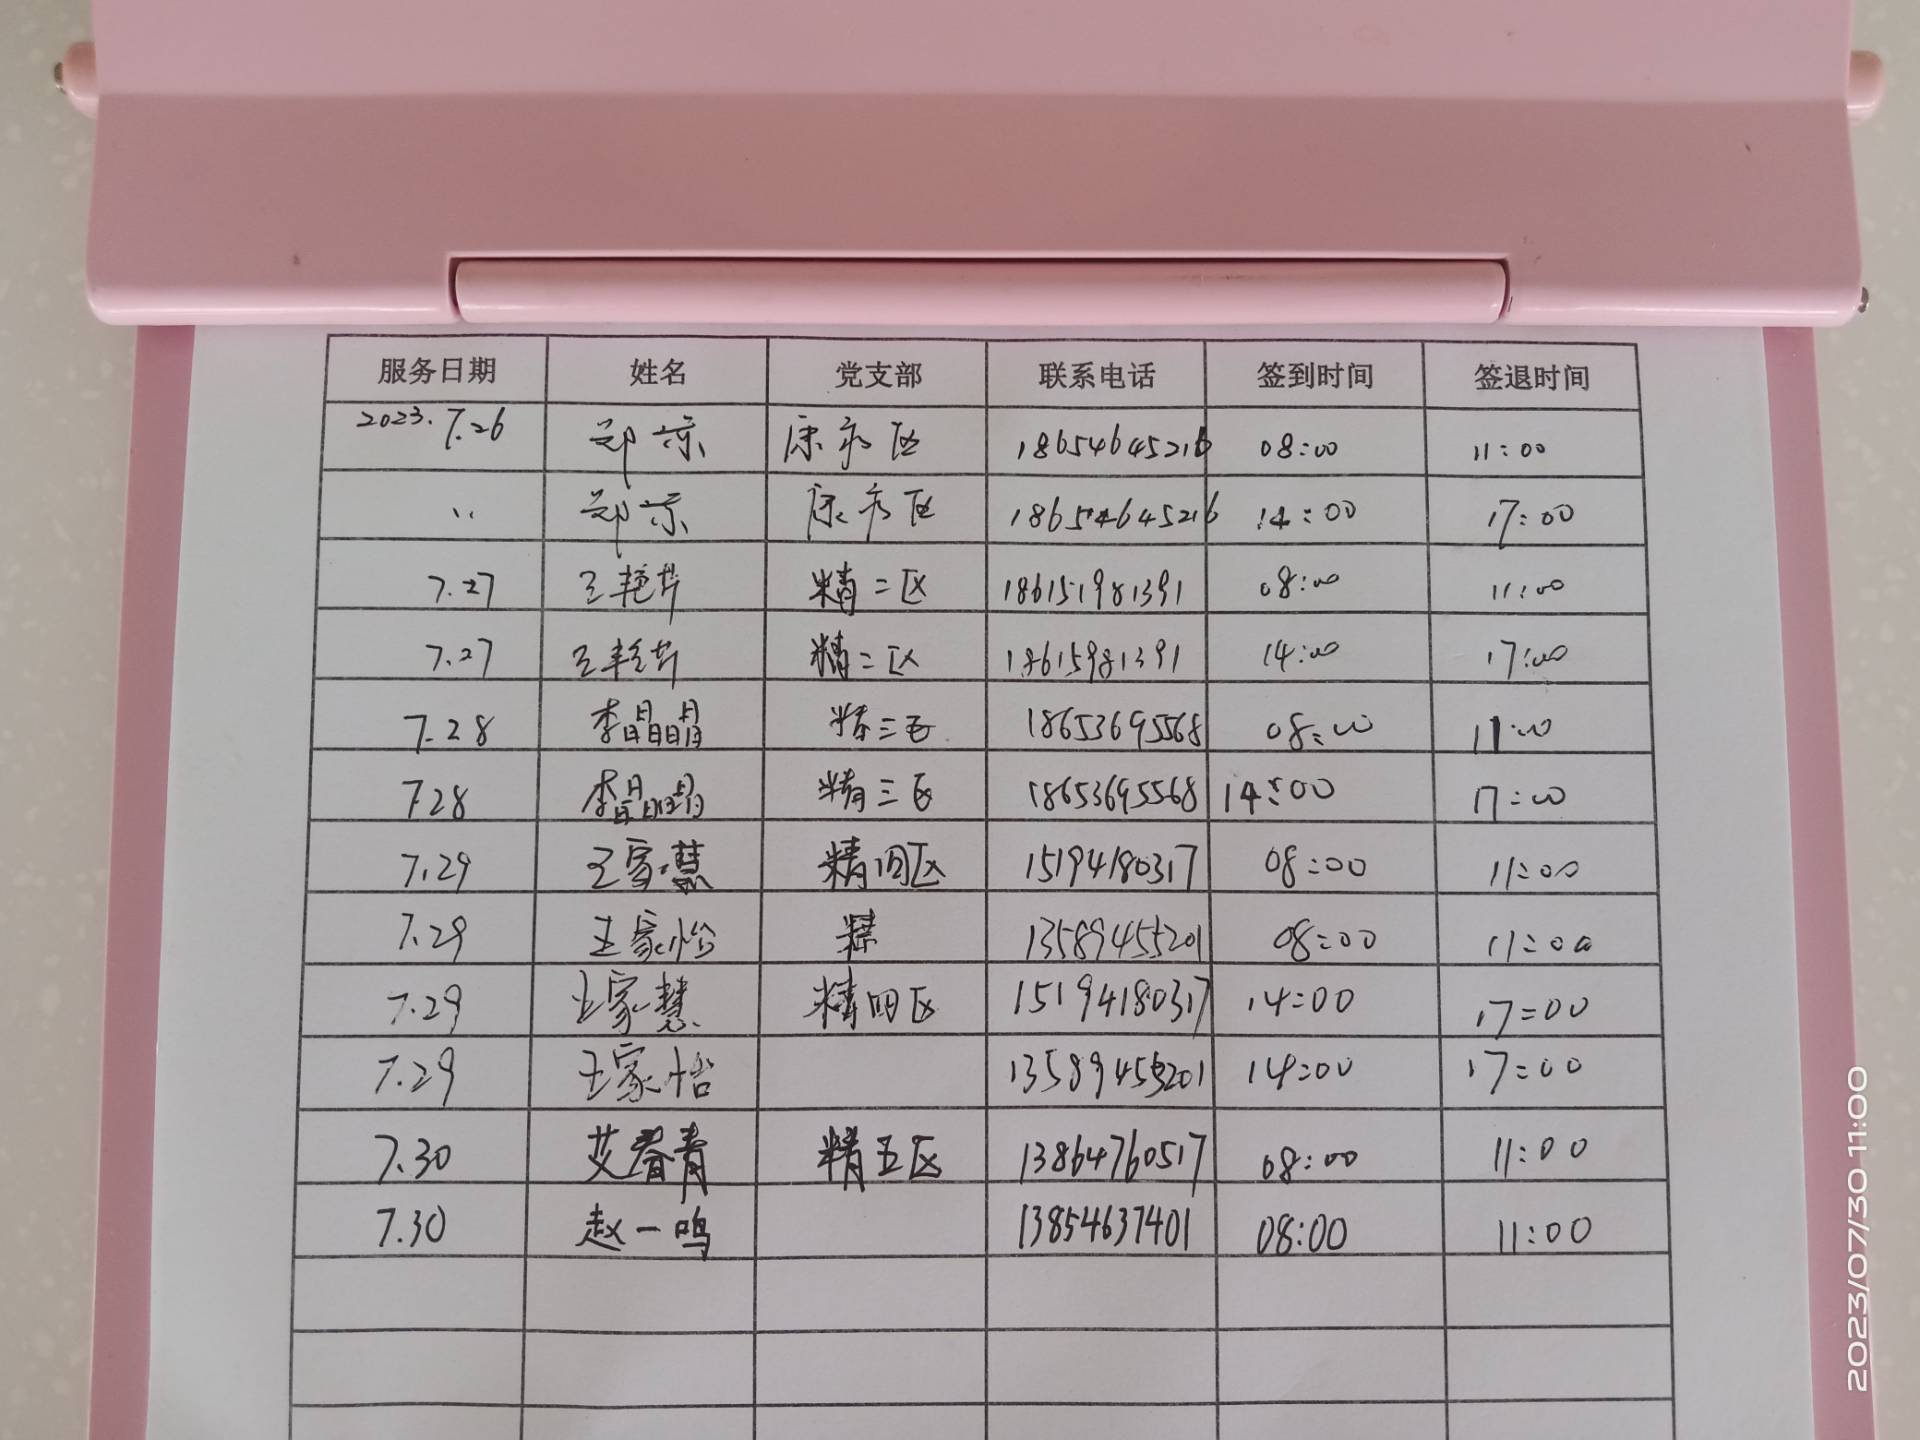 服务日期 姓名 党支部 联系电话 签到时间 签退时间
2023.7.26 郑京 康 区 18654645216 08:00 11:00
〃 郑京 康 区 18654645216 14:00 17:00
7.27 王艳芹 精二区 186151981391 08:00 11:00
7.27 王艳芹 精二区 18615981391 14:00 17:00
7.28 李晶晶 精三区 18653695568 08:00 11:00
7.28 李晶晶 精三区 18653695568 14:00 17:00
7.29 王家慧 精四区 15194180317 08:00 11:00
7.29 王家怡 13589455201 08:00 11:00
7.29 王家慧 精四区 15194180317 14:00 17:00
7.29 王家怡 13589455201 14:00 17:00
7.30 艾春青 精五区 13864760517 08:00 11:00
7.30 赵一鸣 13854637401 08:00 11:00
2023/07/30 11:00